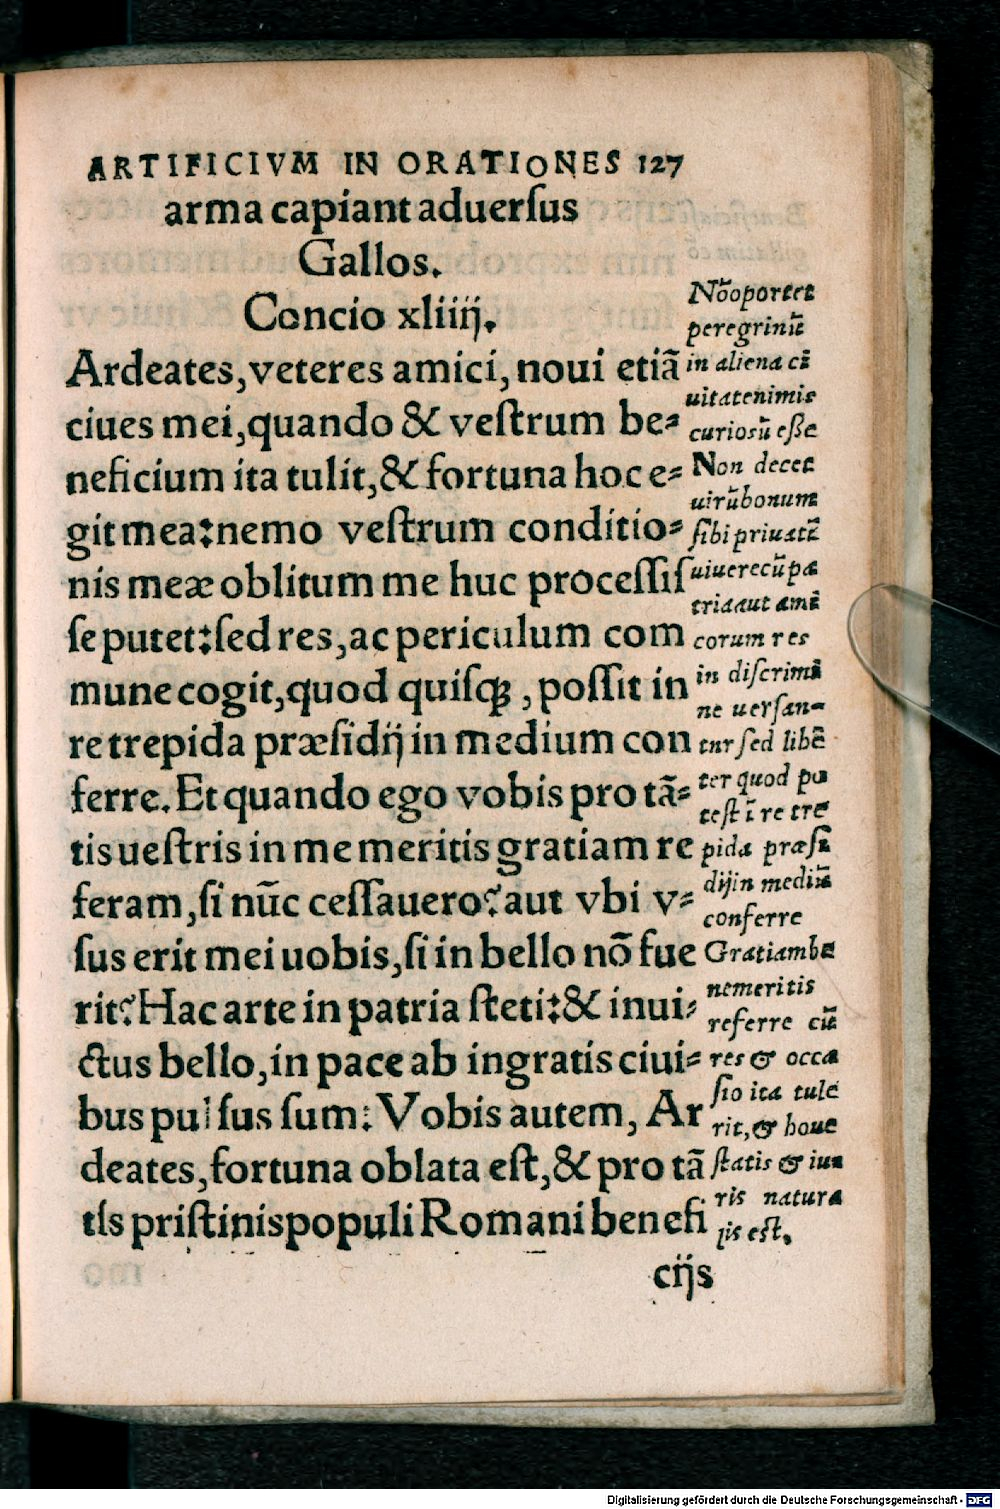 ARTIFICIVM IN ORATIONES 127
arma capiant aduerſus
Gallos.
Concio xliiij.
Ardeates, veteres amici, noui etiã
ciues mei, quando & veſtrum be=
neficium ita tulit, & fortuna hoc e=
git mea: nemo veſtrum conditio=
nis meæ oblitum me huc proceſſiſ
ſe putet: ſed res, ac periculum com
mune cogit, quod quiſqȝ, poſſit in
re trepida præſidij in medium con
ferre. Et quando ego vobis pro tã=
tis ueſtris in me meritis gratiam re
feram, ſi nũc ceſſauero? aut vbi v=
ſus erit mei uobis, ſi in bello nõ fue
rit? Hac arte in patria ſteti: & inui=
ctus bello, in pace ab ingratis ciui=
bus pulſus ſum: Vobis autem, Ar
deates, fortuna oblata eſt, & pro tã
tis priſtinis populi Romani benefi
cijs
Nõ oportet
peregrinũ
in aliena ci
uitate nimis
curioſũ eſſe
Non decet
uirũ bonum
ſibi priuatĩ
uiuere cũ pa
tria aut ami
corum res
in diſcrimi
ne uerſan=
tur ſed libẽ
ter quod po
teſt ĩ re tre
pida præſi
dij in mediũ
conferre
Gratiam be
ne meritis
referre cũ
res & occa
ſio ita tule
rit, & hone
ſtatis & iu=
ris natura
lis eſt.
Digitalisierung gefördert durch die Deutsche Forschungsgemeinschaft - DFG